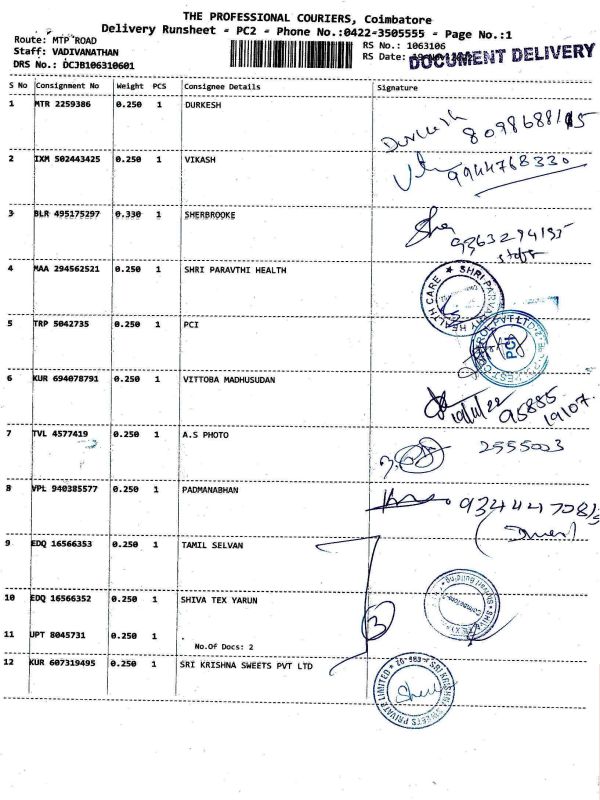 THE PROFESSIONAL COURIERS, Coimbatore
Delivery Runsheet - PC2 - Phone No.:0422-3505555 - Page No.:1
Route: MTP ROAD
RS No.: 1063106
Staff: VADIVANATHAN
RS Date:
DOCUMENT DELIVERY
DRS No.: DCJB106310601
S No Consignment No Weight PCS Consignee Details Signature
1 MTR 2259386 0.250 1 DURKESH
Durkesh 8098688115
2 IXM 502443425 0.250 1 VIKASH
9944768330
3 BLR 495175297 0.330 1 SHERBROOKE
9363294195
staff
4 MAA 294562521 0.250 1 SHRI PARAVTHI HEALTH
SHRI PARVATHY HEALTH CARE
5 TRP 5042735 0.250 1 PCI
PCI
6 KUR 694078791 0.250 1 VITTOBA MADHUSUDAN
19/11/22 95885
19107
7 TVL 4577419 0.250 1 A.S PHOTO
2555003
8 VPL 940385577 0.250 1 PADMANABHAN
934447081
9 EDQ 16566353 0.250 1 TAMIL SELVAN
10 EDQ 16566352 0.250 1 SHIVA TEX YARUN
3
11 UPT 8045731 0.250 1
No.Of Docs: 2
12 KUR 607319495 0.250 1 SRI KRISHNA SWEETS PVT LTD
SRI KRISHNA SWEETS PRIVATE LIMITED